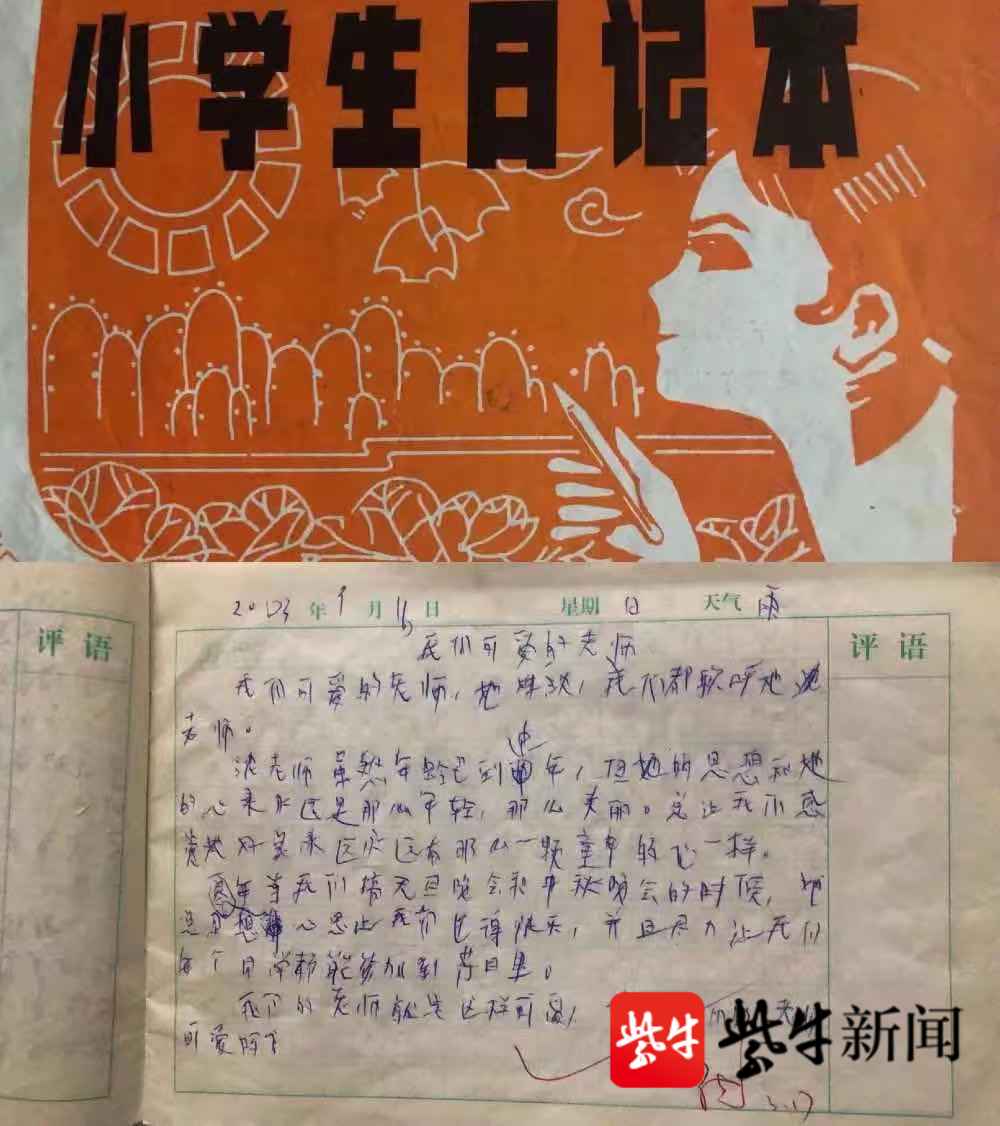 小学生日记本
2003年9月16日 星期日 天气雨
评语
评语
我们可爱的老师
我们可爱的老师，她姓沈，我们都称呼她沈
老师。
沈老师虽然年龄已到中年，但她的思想和她
的心永永远是那么年轻，那么美丽。总让我们感
觉她好象永远永远有那么一颗童年的心一样。
当我们搞元旦晚会和中秋晚会的时候，她
总想 心思让我们 快乐，并且尽力让我们
每个同学都能参加到节目里。
我们的老师就是这样可爱，
可爱啊！
紫牛
紫牛新闻
阅 3.17